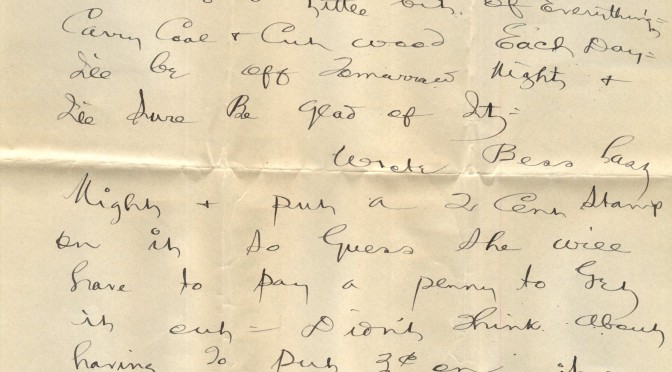 Little bit. Of Everything=
Carry Coal & Cut wood Each Day=
I'le be off Tomarrow Night &
I'le Sure Be glad of It=
Wrote Bess Last
Night & put a 2 Cent Stamp
on it so Guess She will
have to pay a penny to Get
it out = Didn't think about
having to put 3¢ on it